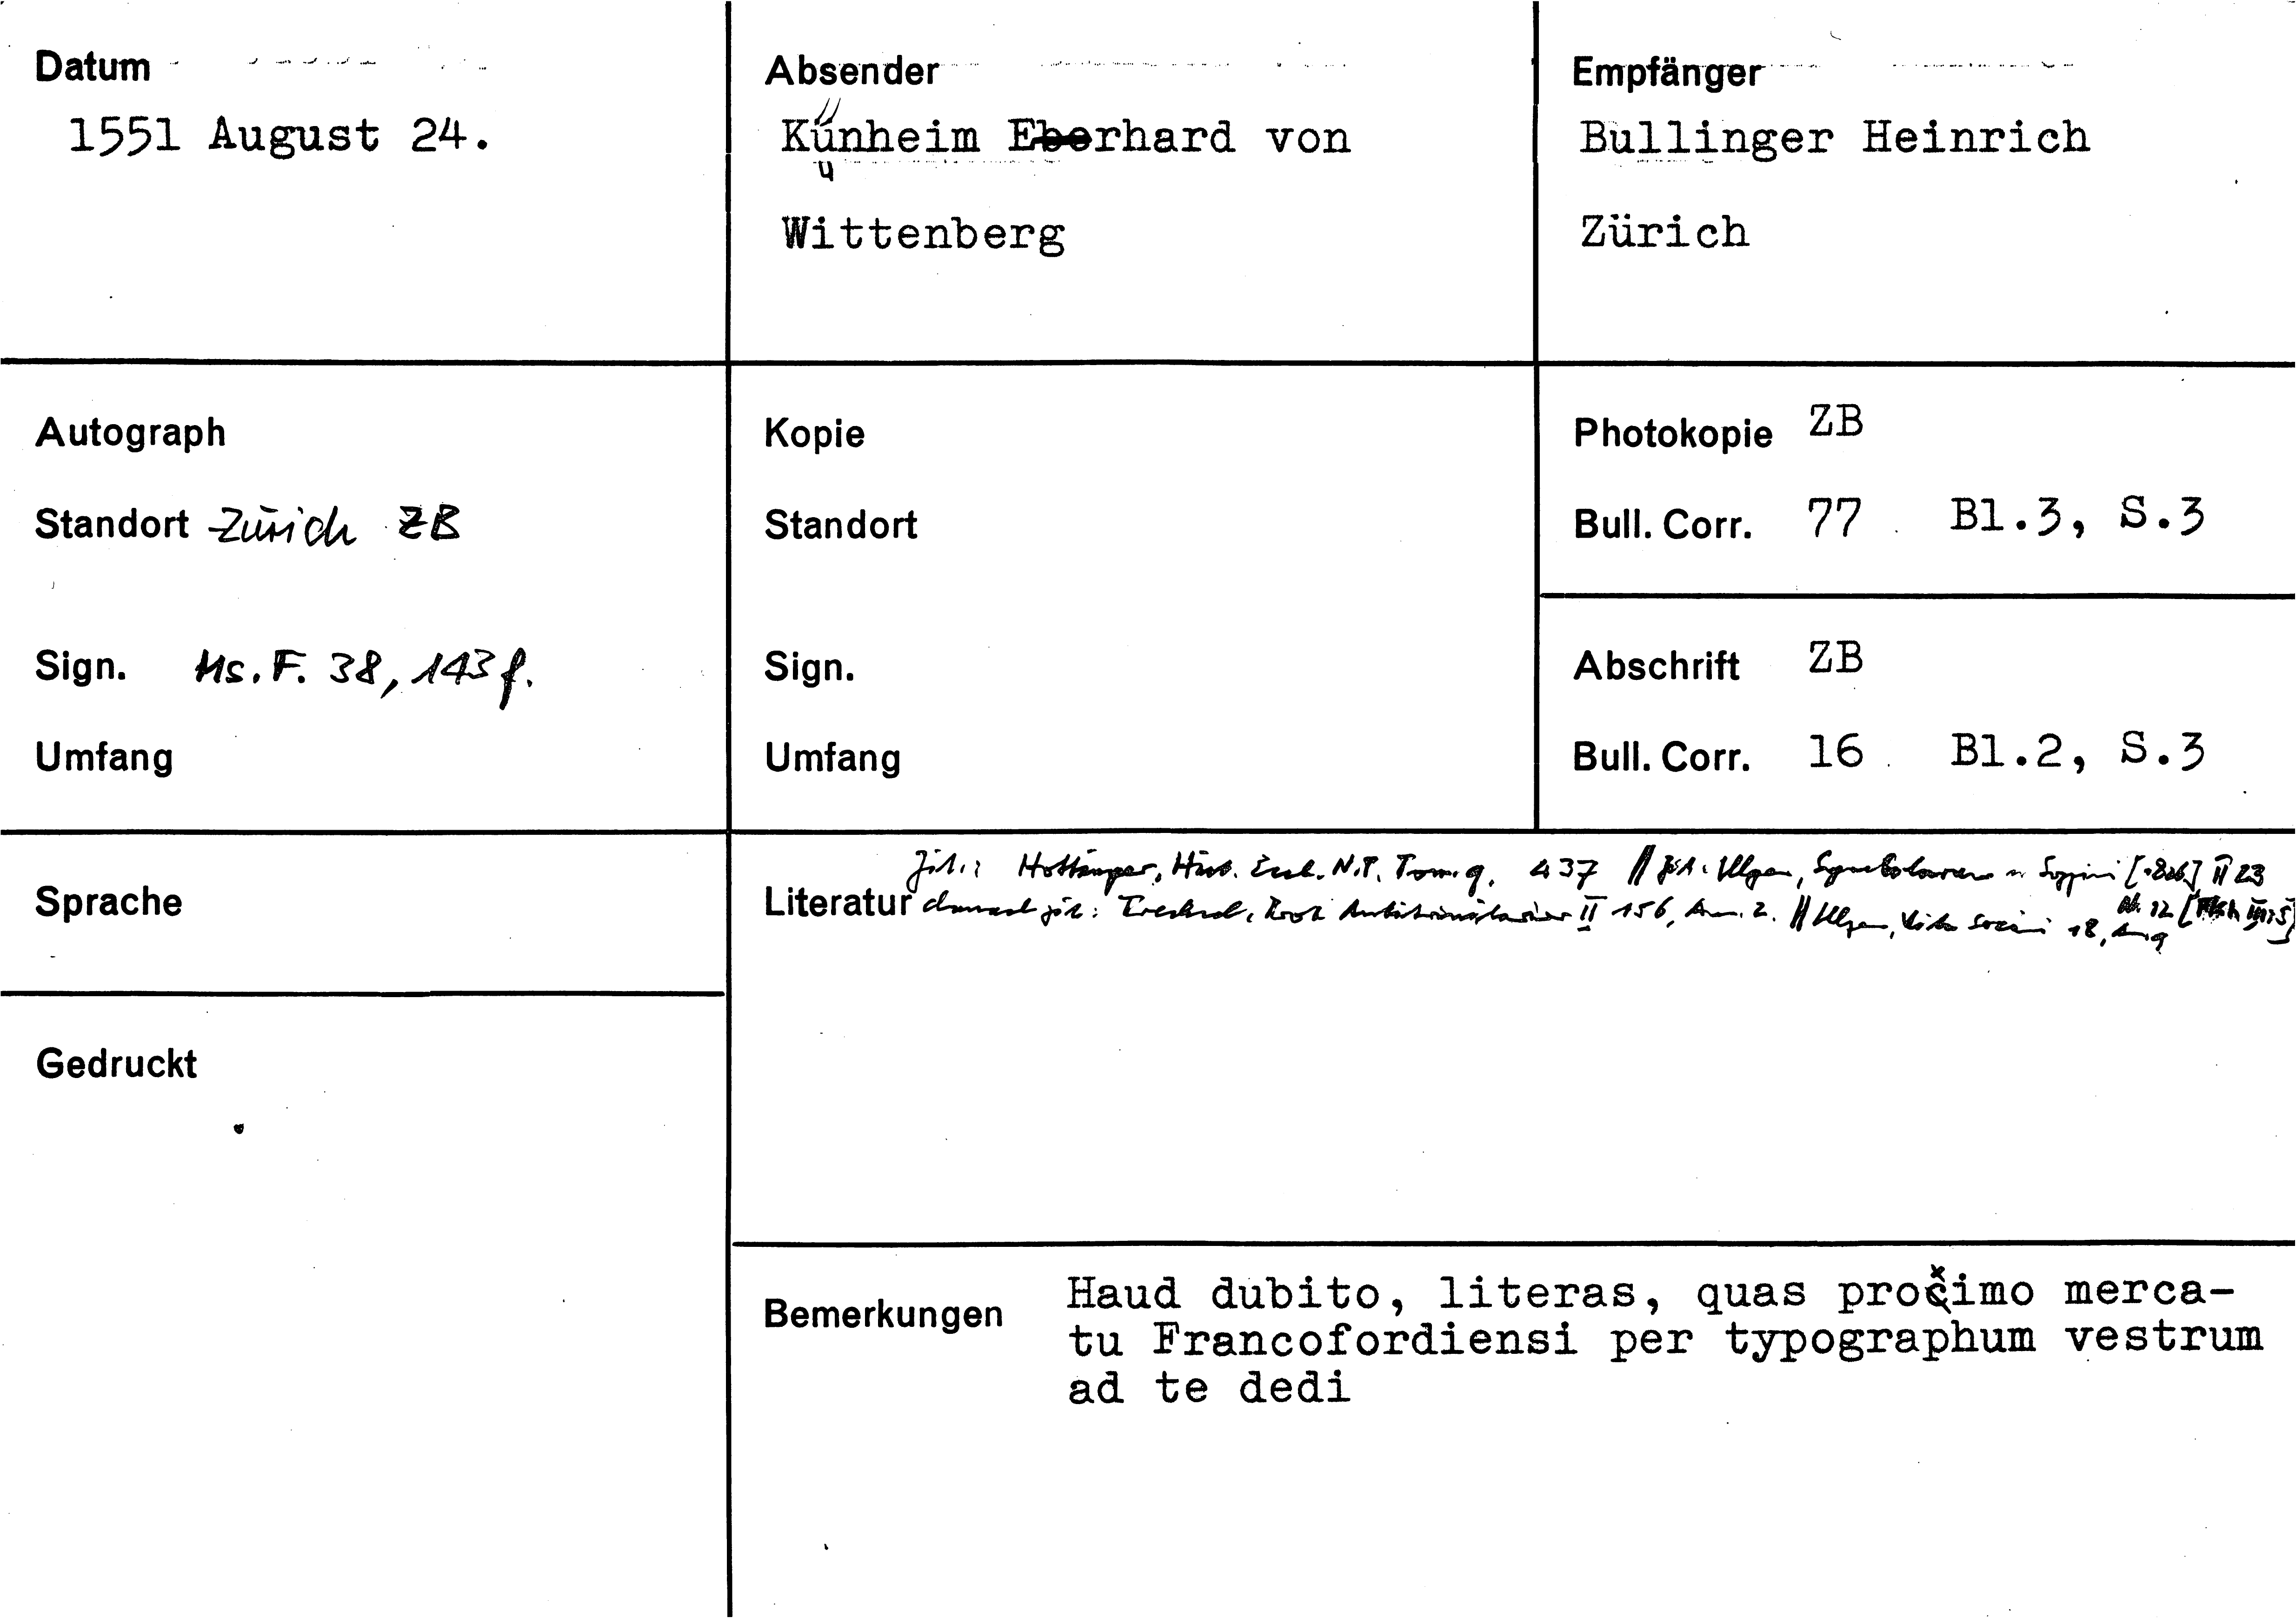 Datum
1551 August 24.
Absender
Künheim Eberhard von
u
Wittenberg
Empfänger
Bullinger Heinrich
Zürich
Autograph
Standort Zürich ZB
Sign. Ms. F. 38, 143 f.
Umfang
Kopie
Standort
Sign.
Umfang
Photokopie ZB
Bull. Corr. 77 Bl.3, S.3
Abschrift ZB
Bull. Corr. 16 Bl.2, S.3
Sprache
Gedruckt
Zit.: Hottinger, Hist. Eccl. N.T. Tom. 9, 437 // Zit. Illgen, II 23
Literatur danach zit.: Trechsel, Prot. Antitrinitarier II 156, Anm. 2. // Illgen, Vita Socini 18,
Bemerkungen Haud dubito, literas, quas proximo merca-
tu Francofordiensi per typographum vestrum
ad te dedi